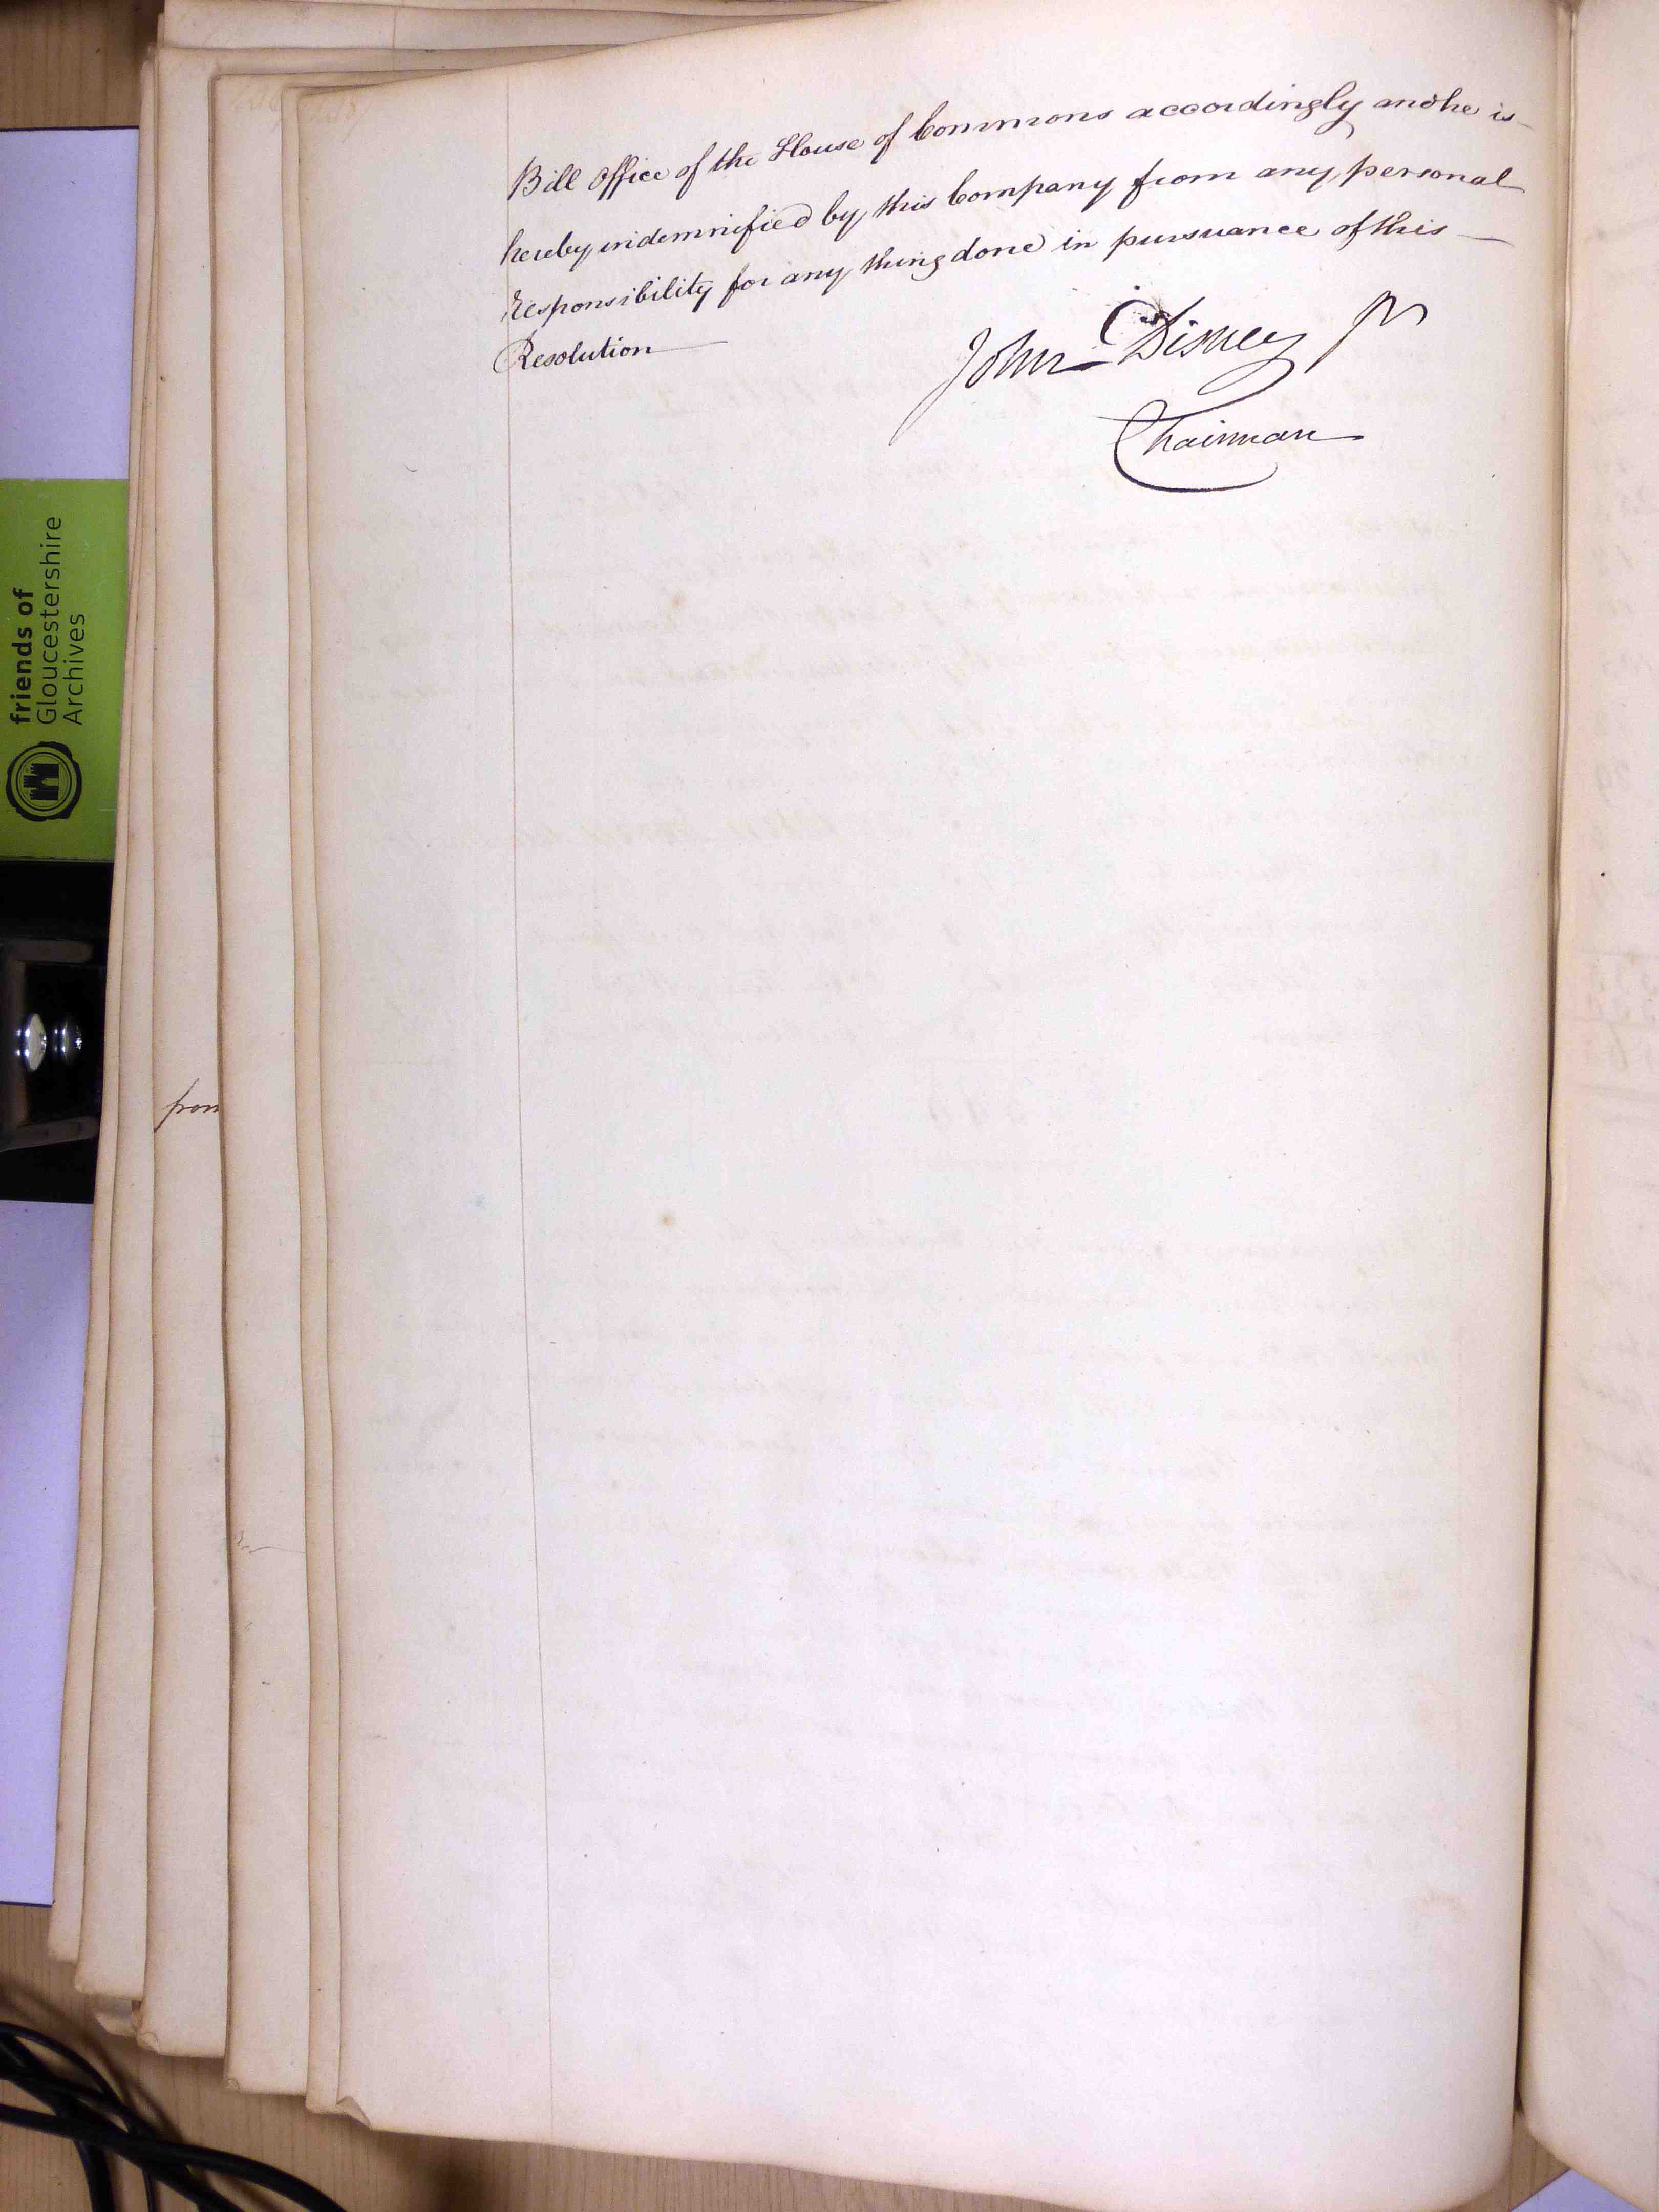 Bill Office of the House of Commons accordingly and he is
hereby indemnified by this Company from any personal
responsibility for any thing done in pursuance of this
Resolution
John Disney
Chairman
from
friends of
Gloucestershire
Archives